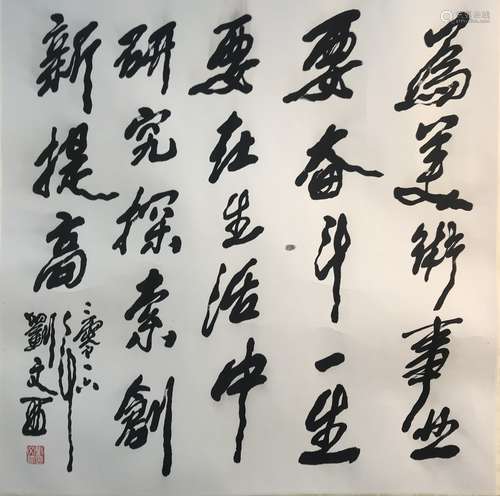 為美術事业
要奋斗一生
要在生活中
研究探索創
新提高
二零一六年
劉文西